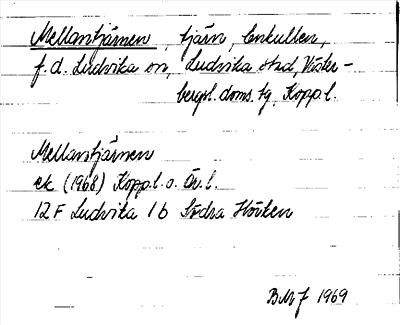 Mellantjärnen, tjärn, Enkullen,
f.d. Ludvika sn, Ludvika stad, Väster-
bergsl. doms. tg, Kopp.l.
Mellantjärnen
ek (1968) Kopp.l. o. Ör.l.
12 F Ludvika 1 b Södra Hörken
BMJ 1969